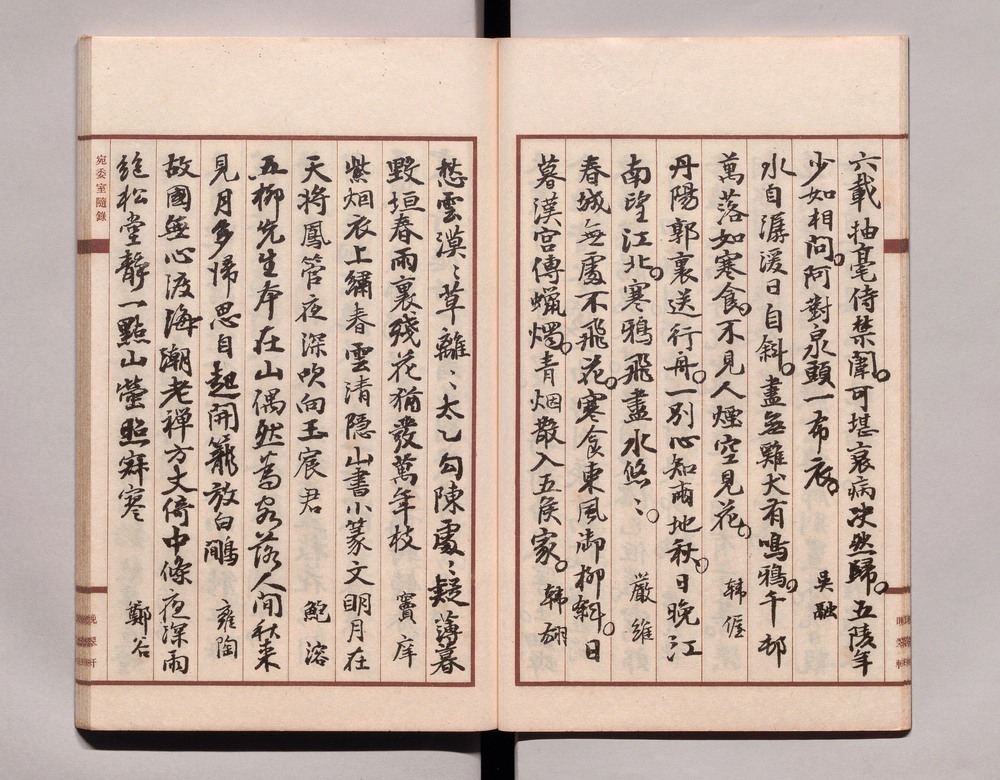 六載抽毫侍禁闈。可堪衰病決然歸。五陵年
少如相問。阿對泉頭一布衣。 吳融
水自潺湲日自斜。盡無雞犬有鳴鴉。千邨
萬落如寒食。不見人煙空見花。 韩偓
丹陽郭裏送行舟。一別心知兩地秋。日晚江
南望江北。寒鴉飛盡水悠〻。 嚴維
春城無處不飛花。寒食東風御柳斜。日
暮漢宮傳蠟燭。青烟散入五侯家。 韩翃
愁雲漠〻草離〻太乙勾陳處〻疑薄暮
毀垣春雨裏殘花猶發萬年枝 竇庠
紫烟衣上繡春雲清隱山書小篆文明月在
天將鳳管夜深吹向玉宸君 鮑溶
五柳先生本在山偶然為客落人間秋来
見月多歸思自起開籠放白鷴 雍陶
故國無心渡海潮老禅方丈倚中條夜深雨
絕松堂靜一點山螢照寂寥 鄭谷
宛委室隨錄